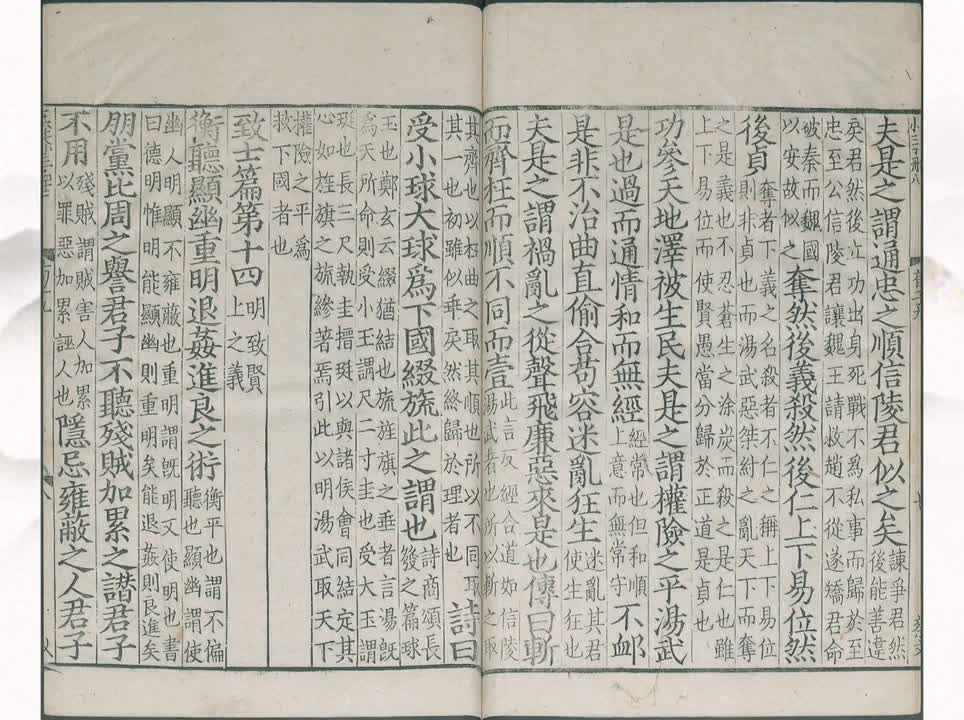 夫是之謂通忠之順信陵君似之矣
諫爭君然
後能善違
戾君然後立功出身死戰不爲私事而歸於至
忠至公信陵君諫魏王請救趙不從遂矯君命
破秦而魏國
以安故似之
奪然後義殺然後仁上下易位然
後貞
奪者下義之名殺者不仁之稱上下易位
則非貞也而湯武惡桀紂之亂天下而奪
之是義也不忍蒼生之塗炭而殺之是仁也雖
上下易位而使賢愚當分歸於正道是貞也
功參天地澤被生民夫是之謂權險之平湯武
是也過而通情和而無經
經常也但和順
上意而無常守
不䘏
是非不治曲直偷合苟容迷亂狂生
迷亂其君
使生狂也
夫是之謂禍亂之從聲飛廉惡來是也傳曰斬
而齊枉而順不同而壹
此言反經合道如信陵
湯武者也所以斬之取
其齊也以枉曲之取其順也所以不同取
其一也初雖似乖戾然終歸於理者也
詩曰
受小球大球爲下國綴旒此之謂也
詩商頌長
發之篇球
玉也鄭玄云綴猶結也旒旌旗之垂者言湯旣
爲天所命則受小玉謂尺二寸圭也受大玉謂
珽也長三尺執圭搢珽以與諸侯會同結定其
心如旌旗之旒縿著焉引此以明湯武取天下
權險之平爲
救下國者也
致士篇第十四
明致賢
上之義
衡聽顯幽重明退姦進良之術
衡平也謂不偏
聽也顯幽謂使
幽人明顯不雍蔽也重明謂旣明又使明也書
曰德明惟明能顯幽則重明矣能退姦則良進矣
朋黨比周之譽君子不聽殘賊加累之譖君子
不用
殘賊謂賊害人加累
以罪惡加累誣人也
隱忌雍蔽之人君子